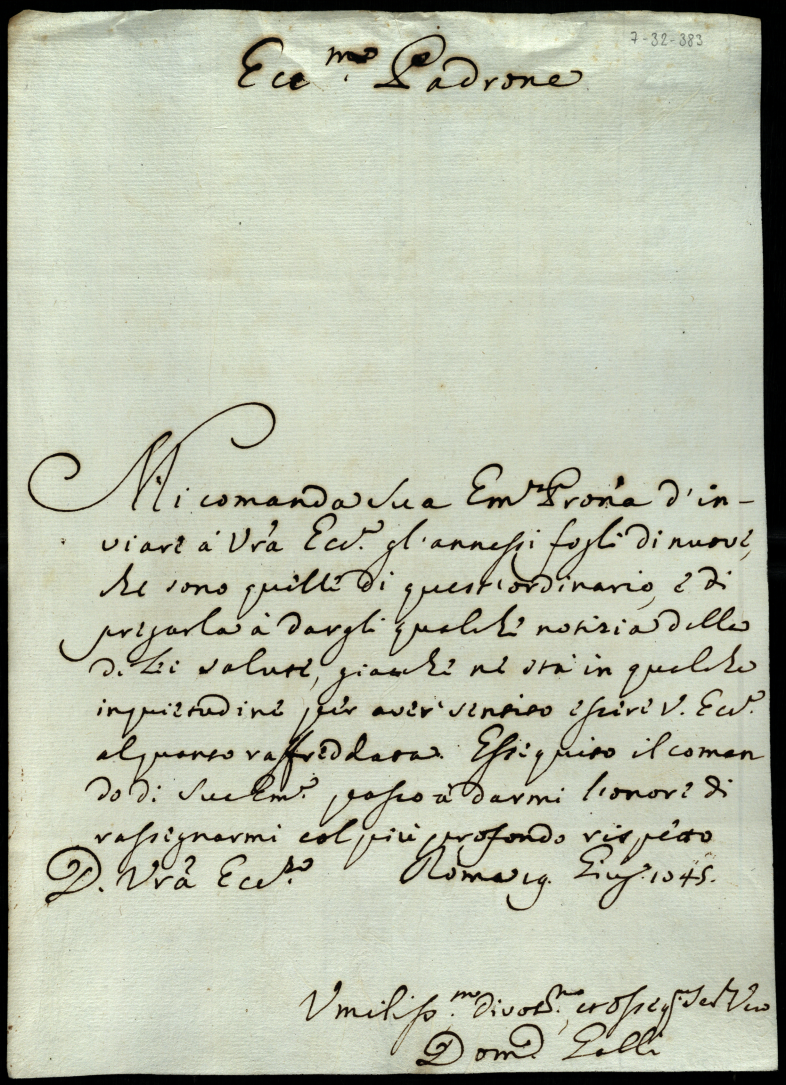 7-32-383
Ecc.mo Padrone
Mi comanda Sua Em.za Pron'a d'in-
viare à Vr'a Ecc.a gl'annessi fogli di nuove,
che sono quelle di quest'ordinario, e di
pregarla à dargli qualche notizia della
di Lei salute, giacche ne stà in qualche
inquietudine per aver sentito essere V. Ecc.a
alquanto raffreddata. Essequito il coman
do di Sua Em.a passo à darmi l'onore di
rassegnarmi col più profondo rispetto
D. Vr'a Ecc.za Roma 19. Giug.
Umiliss.mo divot.mo, et osseq.
Dom.o Galli